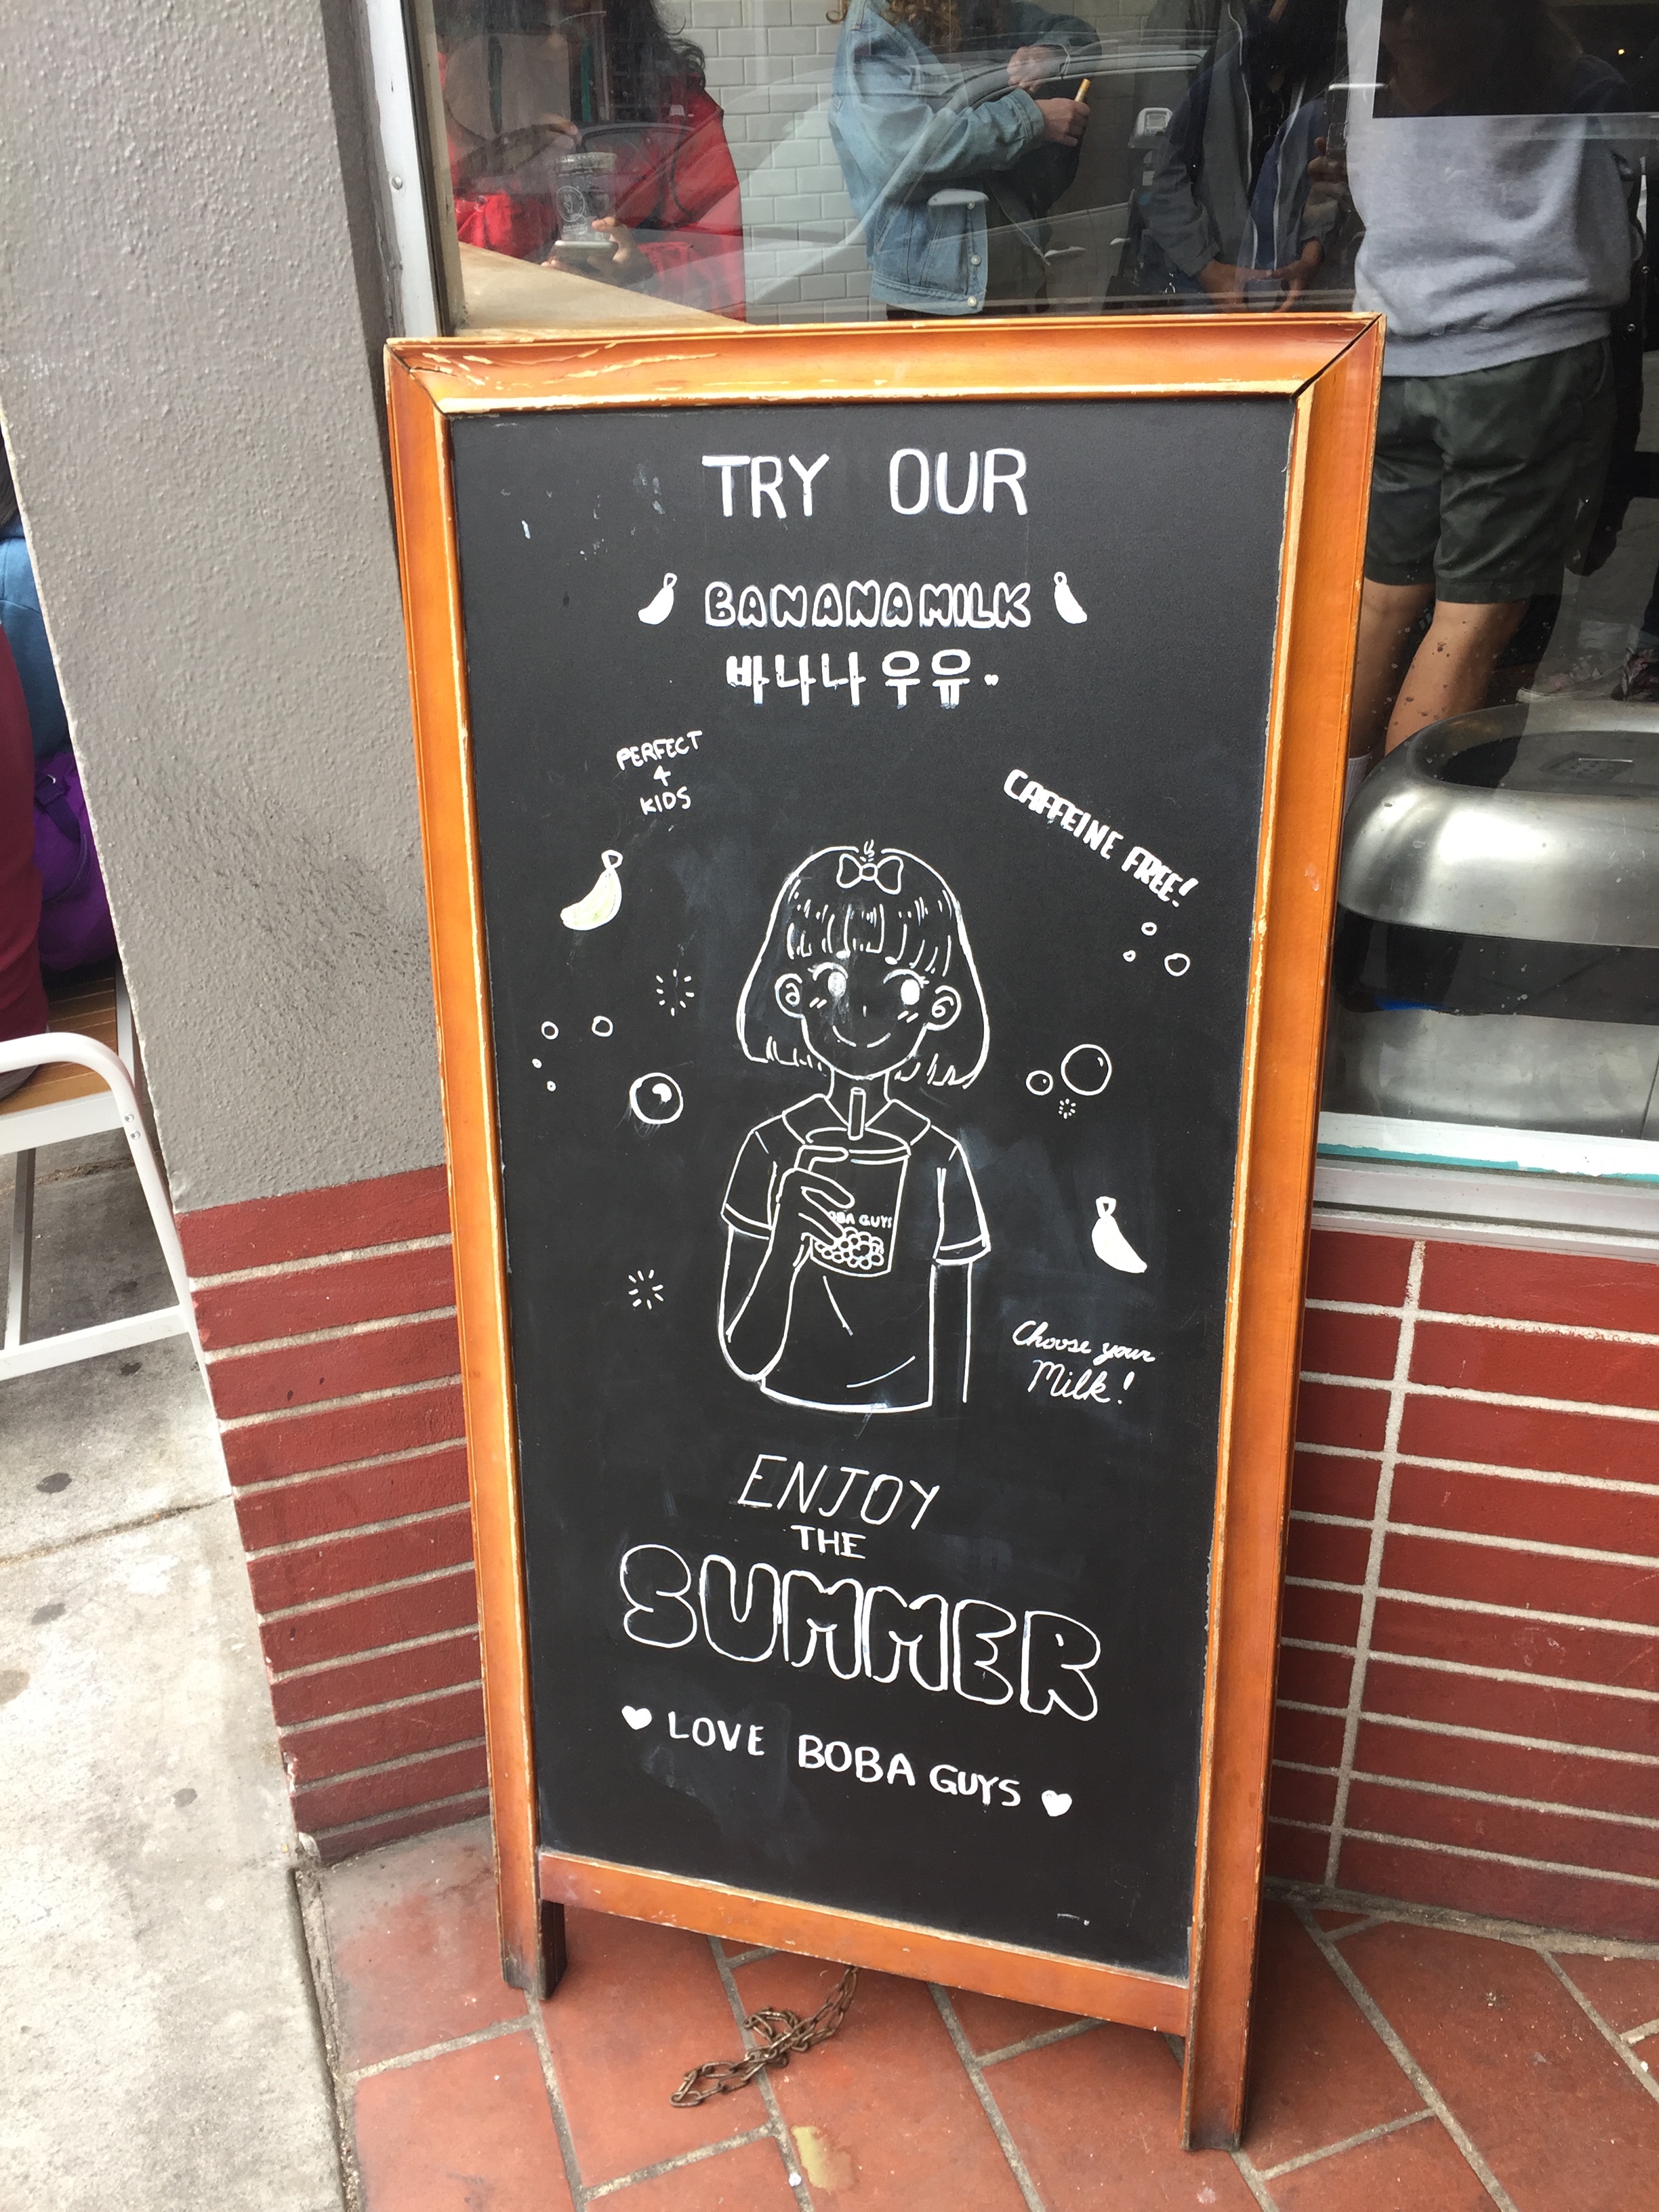 TRY OUR
BANANA MILK
바나나 우유
PERFECT
4
KIDS
CAFFEINE FREE!
BOBA GUYS
Choose your
Milk!
ENJOY
THE
SUMMER
LOVE BOBA GUYS